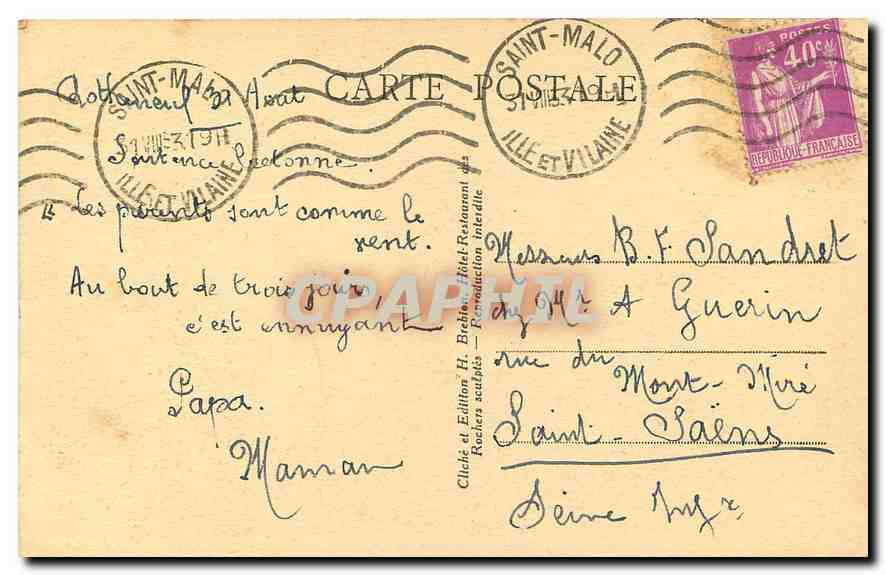 CARTE POSTALE
Rothéneuf 31 Août
Sentence bretonne.
"Les parents sont comme le
vent.
Au bout de trois jours,
c'est ennuyant
Papa.
Maman
SAINT-MALO
ILLE ET VILAINE
SAINT-MALO
31 VIII
ILLE ET VILAINE
POSTES
40c
REPUBLIQUE-FRANÇAISE
Cliché et Edition H. Brebion, Hôtel-Restaurant des
Rochers sculptés — Reproduction interdite
Messieurs B. F. Sandret
chez Mr A Guerin
rue du
Mont-Miré
Saint-Saëns
Seine Infre
CPAPHIL